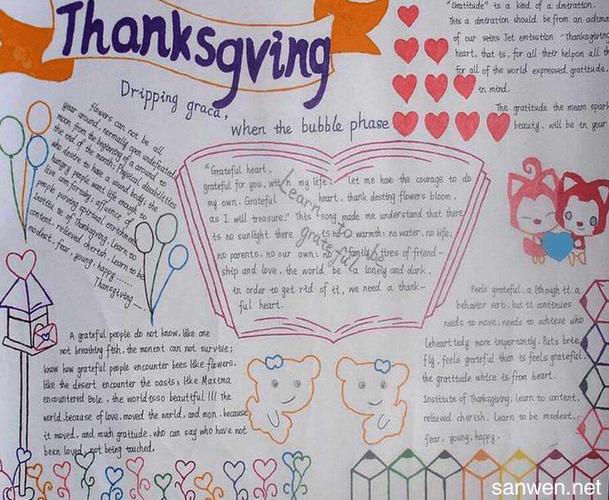 Thanksgving
Dripping graca,
when the bubble phase
"Gratitude" is a kind of a dmiration.
This a dmiration should be from an
of our veins let emission "Thanksgiving
heart, that is, for all their helpon all
for all of the world expressed gratitude,
in mind.
The gratitude the meam spar
beauty. will be in your
flowers can not be all
year around, normally open undefeated
moon from the beginning of a around to
the end of the month; Physical disabilities
who desire to have a sound body; the
hungry people want life enough to
live com fortably; affluence of
people pursuing spiritual enrichment
Institu te of Thanksgiving. Learn to
content, relieved cherish. Learn to be
modest, fear, young, happy......
Thanksgiving...
"Grateful heart,
grateful for you, with n my life, let me hae the courage to do
my own. Grateful heart, thank desting flowers bloom.
as I will treasure." This song made me understand that there
is no sunlight there is no warmth; no water, no life;
no parents, no our own; no family tires of friend-
ship and love, the world be a lonely and dark.
in order to get rid of it, we need a thank-
ful heart.
Learn to be
grateful
A grateful people do not know, like one
not breathing fish, the monent can not survive;
know how grateful people encounter bees like flowers,
like the desert encounter the oasis; like Maxema
encountered Bole. the world esso beautiful Ill the
world.because of love, moved the world, and mon, because
it moved, and much gratitude, who can say who have not
been loved, not being touched.
Feels grateful, a lthough it a
behavior verb, but it continues
needs to move, needs to achieve who
Leheart tedy more importantly. Puts brie
fly, feels grateful then is feels grateful,
the gratitude whice is from heart.
Institute of Thanksgiving. learn to content,
relieved cherish. Learn to be modest,
fear, young, happy.
sanwen.net